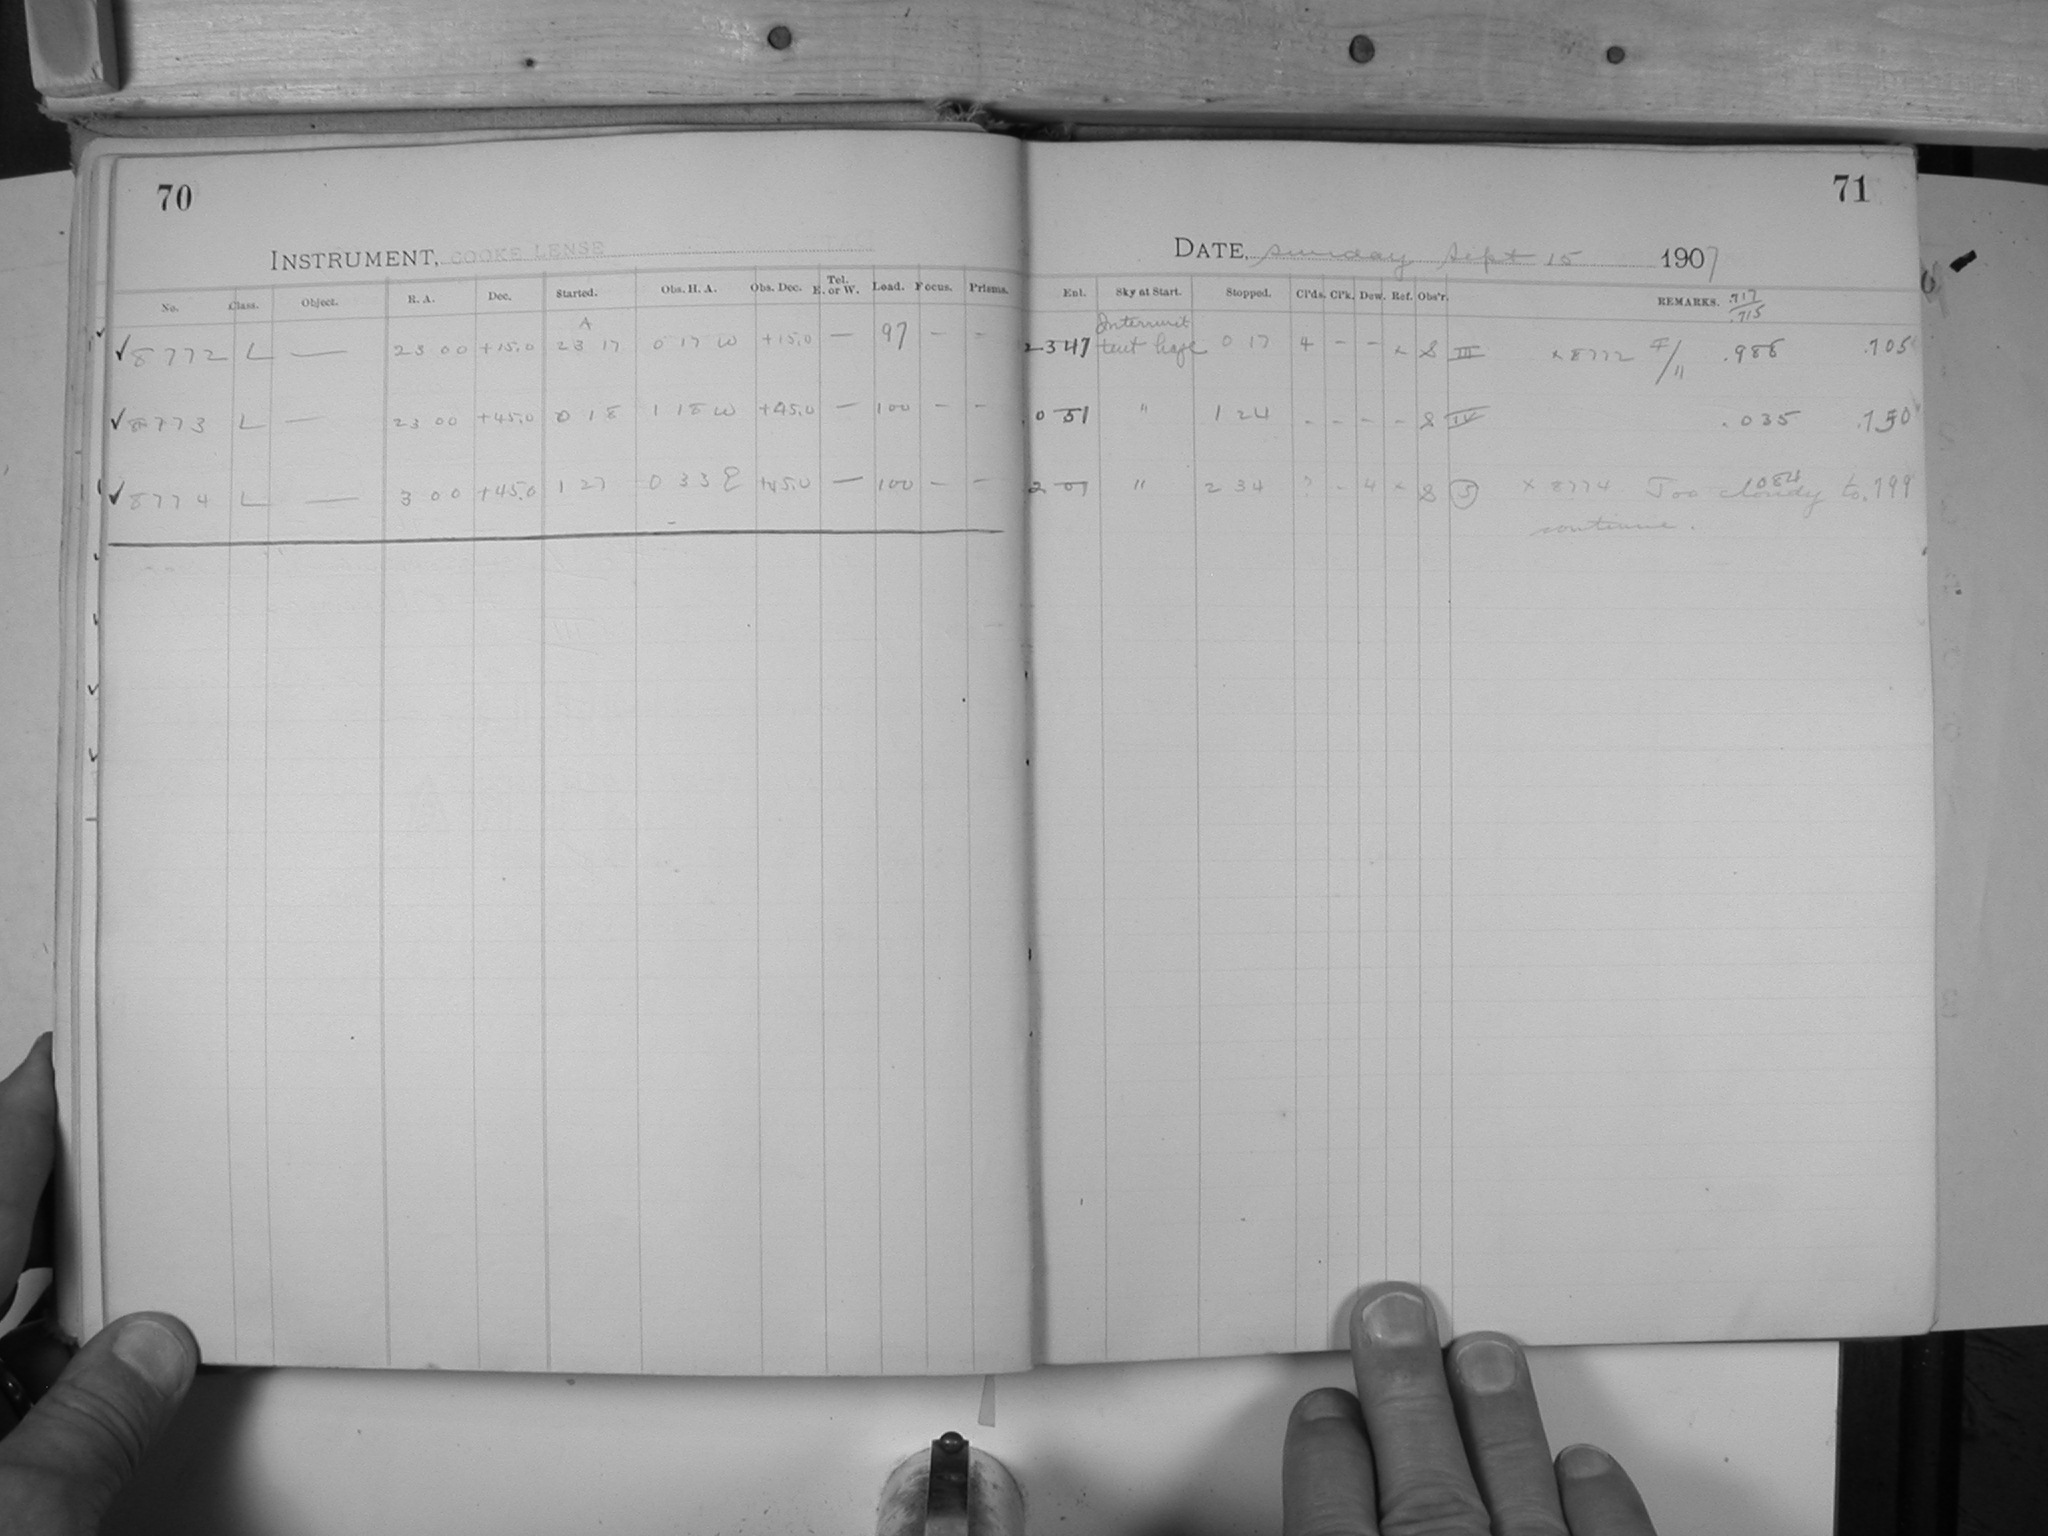 70
INSTRUMENT, COOKE LENSE
No. Class. Object. R. A. Dec. Started. Obs. H. A. Obs. Dec. Tel. E. or W. Load. Focus. Prisms.
A
✓ 8772 L — 23 00 +15.0 23 17 0 17 W +15.0 — 97 — —
✓ 8773 L — 23 00 +45.0 0 18 1 18 W +45.0 — 100 — —
✓ 8774 L — 3 00 +45.0 1 27 0 33 E +45.0 — 100 — —
71
DATE, Sunday Sept 15 1907
Enl. Sky at Start. Stopped. Cl'ds. Cl'k. Dew. Ref. Obs'r. REMARKS. .717
.715
23 47 Intermit
tent haze 0 17 4 - - × S III × 8772 F/11 .986 .705
0 51 " 1 24 - - - - S IV .035 .750
2 01 " 2 34 ? - 4 × S 5 × 8774 Too cloudy to .084 .799
continue.